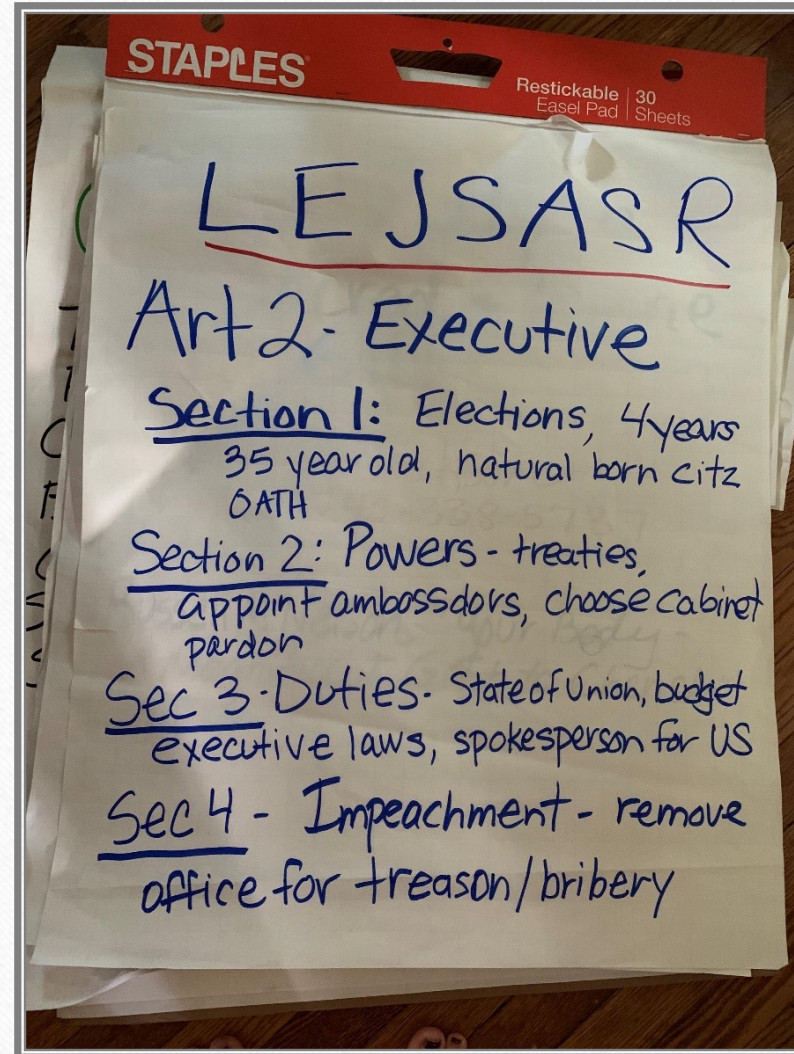 STAPLES
Restickable 30
Easel Pad Sheets
LEJSASR
Art 2 - Executive
Section 1: Elections, 4 years
35 year old, natural born citz
OATH
Section 2: Powers - treaties,
appoint ambossdors, choose cabinet
pardon
Sec 3 - Duties - State of Union, budget
executive laws, spokesperson for US
Sec 4 - Impeachment - remove
office for treason/bribery